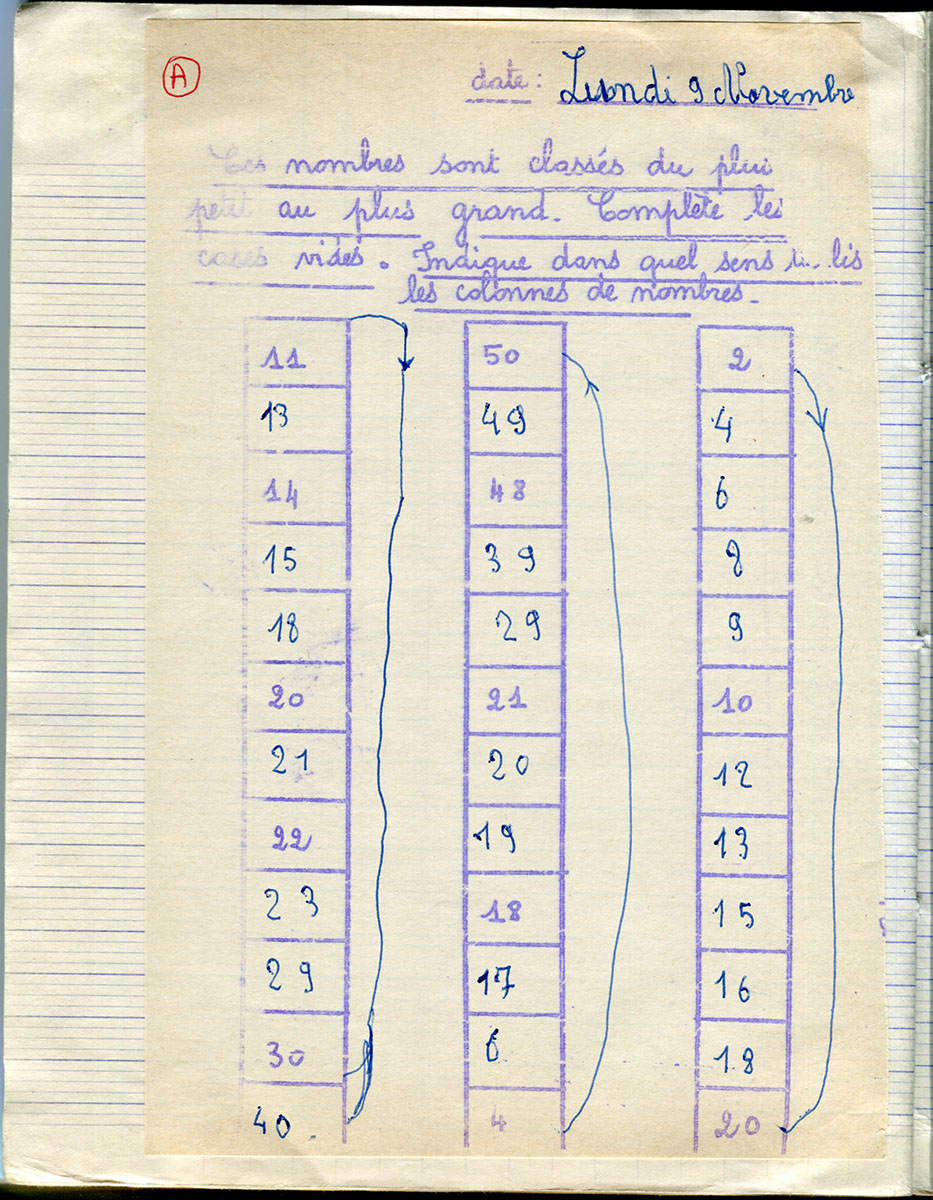 A
date : Lundi 9 Novembre
Ces nombres sont classés du plus
petit au plus grand. Complète les
cases vides. Indique dans quel sens tu lis
les colonnes de nombres.
11 50 2
13 49 4
14 48 6
15 39 8
18 29 9
20 21 10
21 20 12
22 19 13
23 18 15
29 17 16
30 6 18
40 4 20